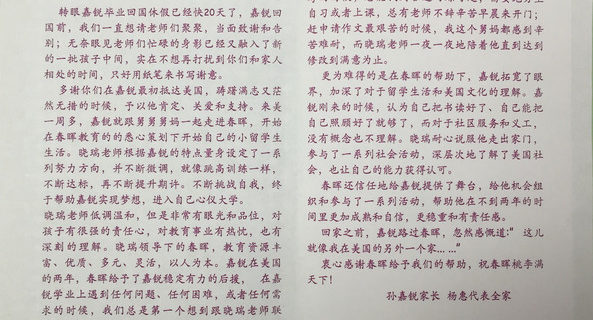 转眼嘉锐毕业回国休假已经快20天了，嘉锐回
国前，我们一直想请老师们聚聚，当面致谢和告
别；无奈眼见老师们忙碌的身影已经又融入了新
的一批孩子中间，实在不想再打扰到你们和家人
相处的时间，只好用纸笔来书写谢意。
多谢你们在嘉锐最初抵达美国，踌躇满志又茫
然无措的时候，予以他肯定、关爱和支持。来美
一周多，嘉锐就跟舅舅舅妈一起走进春晖，开始
在春晖教育的的悉心策划下开始自己的小留学生
生活。晓瑞老师根据嘉锐的特点量身设定了一系
列努力方向，并不断微调，就像跳高训练一样，
不断达标，再不断提升期许。不断挑战自我，终
于帮助嘉锐实现梦想，进入自己心仪大学。
晓瑞老师低调温和，但是非常有眼光和品位，对
孩子有很强的责任心，对教育事业有热忱，也有
深刻的理解。晓瑞领导下的春晖，教育资源丰
富、优质、多元、灵活，以人力本。嘉锐在美国
的两年，春晖给予了嘉锐稳定有力的后援， 在嘉
锐学业上遇到任何问题、任何困难，或者任何需
求的时候，我们总是第一个想到跟晓瑞老师联
自习或者上课，总有老师不辞辛苦早晨来开门；
赶申请作文最艰苦的时候，我这个舅妈都感到辛
苦难耐，而晓瑞老师一夜一夜地陪着他直到达到
修改到满意为止。
更为难得的是在春晖的帮助下，嘉锐拓宽了眼
界，加深了对于留学生活和美国文化的理解。嘉
锐刚来的时候，认为自己把书读好了，自己能把
自己照顾好了就够了，而对于社区服务和义工，
没有概念也不理解。晓瑞耐心说服他走出家门，
参与了一系列社会活动，深层次地了解了美国社
会，也让自己的能力获得认可。
春晖还信任地给嘉锐提供了舞台，给他机会组
织和参与了一系列活动，帮助他在不到两年的时
间里更加成熟和自信，更稳重和有责任感。
回家之前，嘉锐路过春晖，忽然感慨道：“ 这儿
就像我在美国的另外一个家... ...”
衷心感谢春晖给予我们的帮助，祝春晖桃李满
天下！
孙嘉锐家长 杨惠代表全家